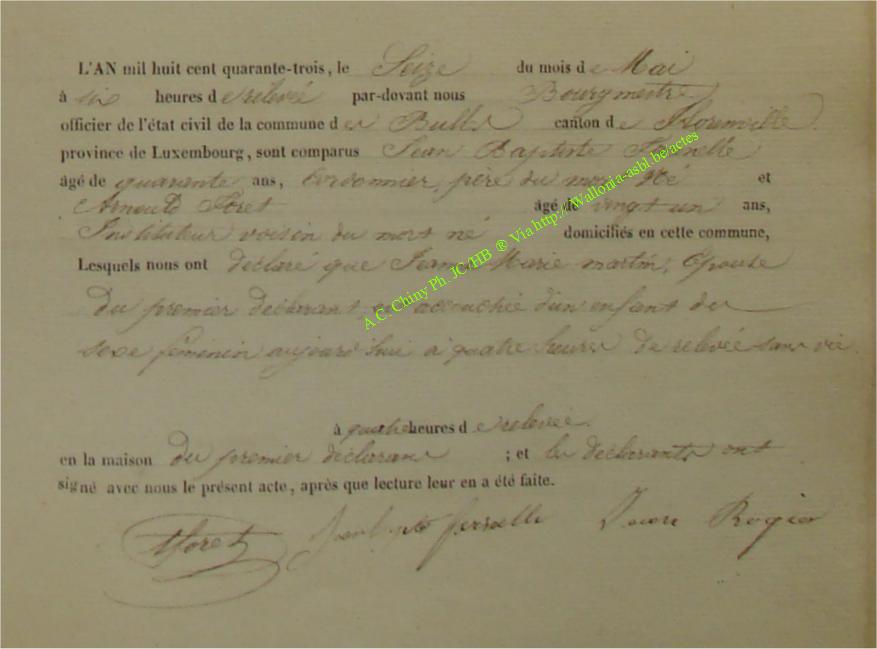 L'AN mil huit cent quarante-trois, le Seize du mois de Mai
à six heures de relevée par-devant nous Bourgmestre
officier de l'état civil de la commune de Bulles canton de Florenville
province de Luxembourg, sont comparus Jean Baptiste
âgé de quarante ans, Cordonnier, père du mort Né et
Arnould Foret âgé de vingt un ans,
Instituteur voisin du mort né domiciliés en cette commune,
Lesquels nous ont déclaré que Jeanne Marie martin, Epouse
du premier déclarant, est accouchée d'un enfant du
sexe féminin aujourd'hui à quatre heures de relevée sans vie.
à quatre heures de relevée
en la maison du premier déclarant ; et les déclarants ont
signé avec nous le présent acte, après que lecture leur en a été faite.
AForet Rogier
A.C. Chiny Ph. JC/HB ® Via http://Wallonia-asbl.be/actes